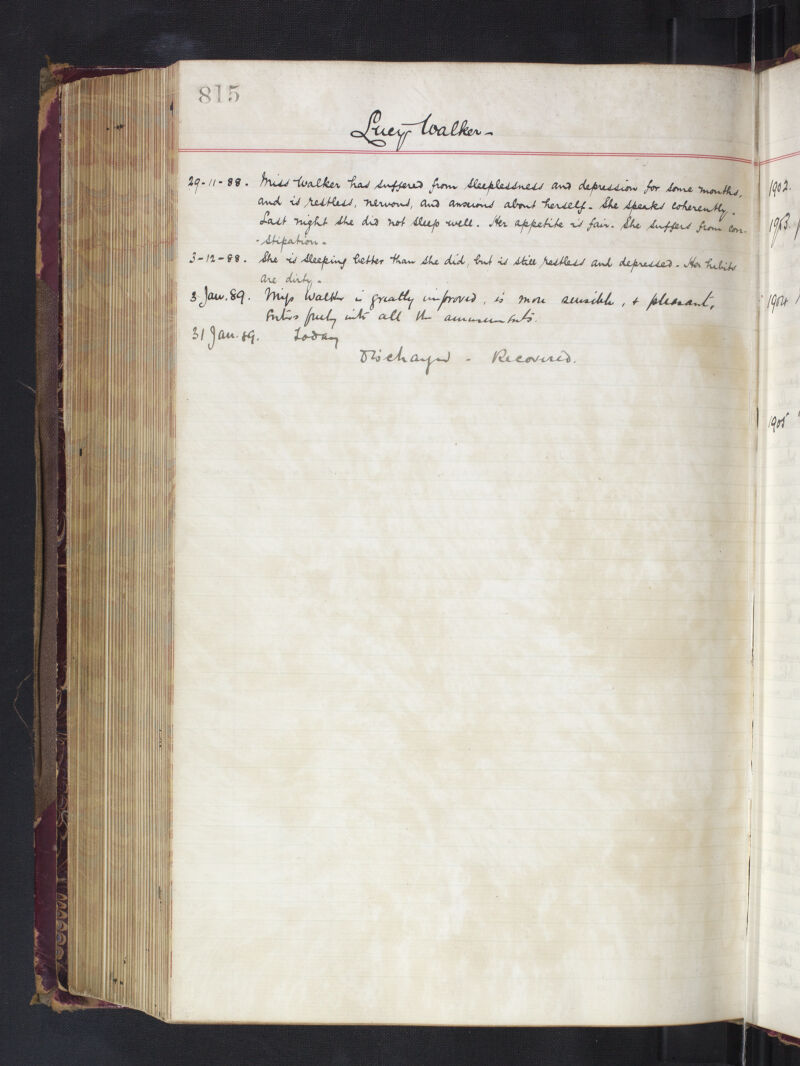 815
Lucy Walker -
29-11-88. Miss Walker has suffered from sleeplessness and depression for some months,
and is restless, nervous, and anxious about herself. She speaks coherently.
Last night she did not sleep well. Her appetite is fair. She suffers from con-
-stipation.
3-12-88. She is sleeping better than she did, but is still restless and depressed. Her habits
are dirty.
3 Jan. 89. Miss Walker is greatly improved, is more sensible, & pleasant,
Enters freely into all the amusements.
31 Jan. 89. Today
Discharged - Recovered.
1902.
1903.
1904
1905